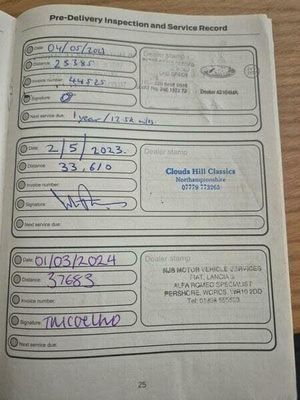 Pre-Delivery Inspection and Service Record
Date: 04/05/2
Distance: 25385
Dealer stamp
Invoice number: 44525
Signature:
Next service due: 1 year / 12.5k mls
Date: 2/5/2023.
Dealer stamp
Distance: 33,610
Clouds Hill Classics
Northamptonshire
07779 772260
Invoice number:
Signature:
Next service due:
Date: 01/03/2024
Dealer stamp
Distance: 37683
NJB MOTOR VEHICLE SERVICES
FIAT, LANCIA &
ALFA ROMEO SPECIALIST
Invoice number:
PERSHORE, WORCS, WR10 2DD
Tel: 01386
Signature: TMCoelho
Next service due:
25